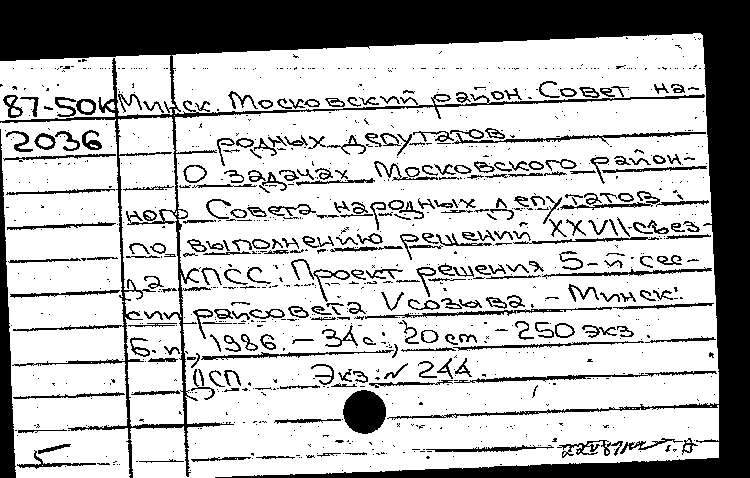 87-50К Минск. Московский район. Совет на-
2036 родных депутатов.
О задачах Московского район-
ного Совета народных депутатов
по выполнению решений XXVII съез-
да КПСС: Проект решения 5-й сес-
сии райсовета V созыва. - Минск:
Б. и., 1986. - 34 с.; 20 см. - 250 экз.
ДСП. Экз. № 244.
5